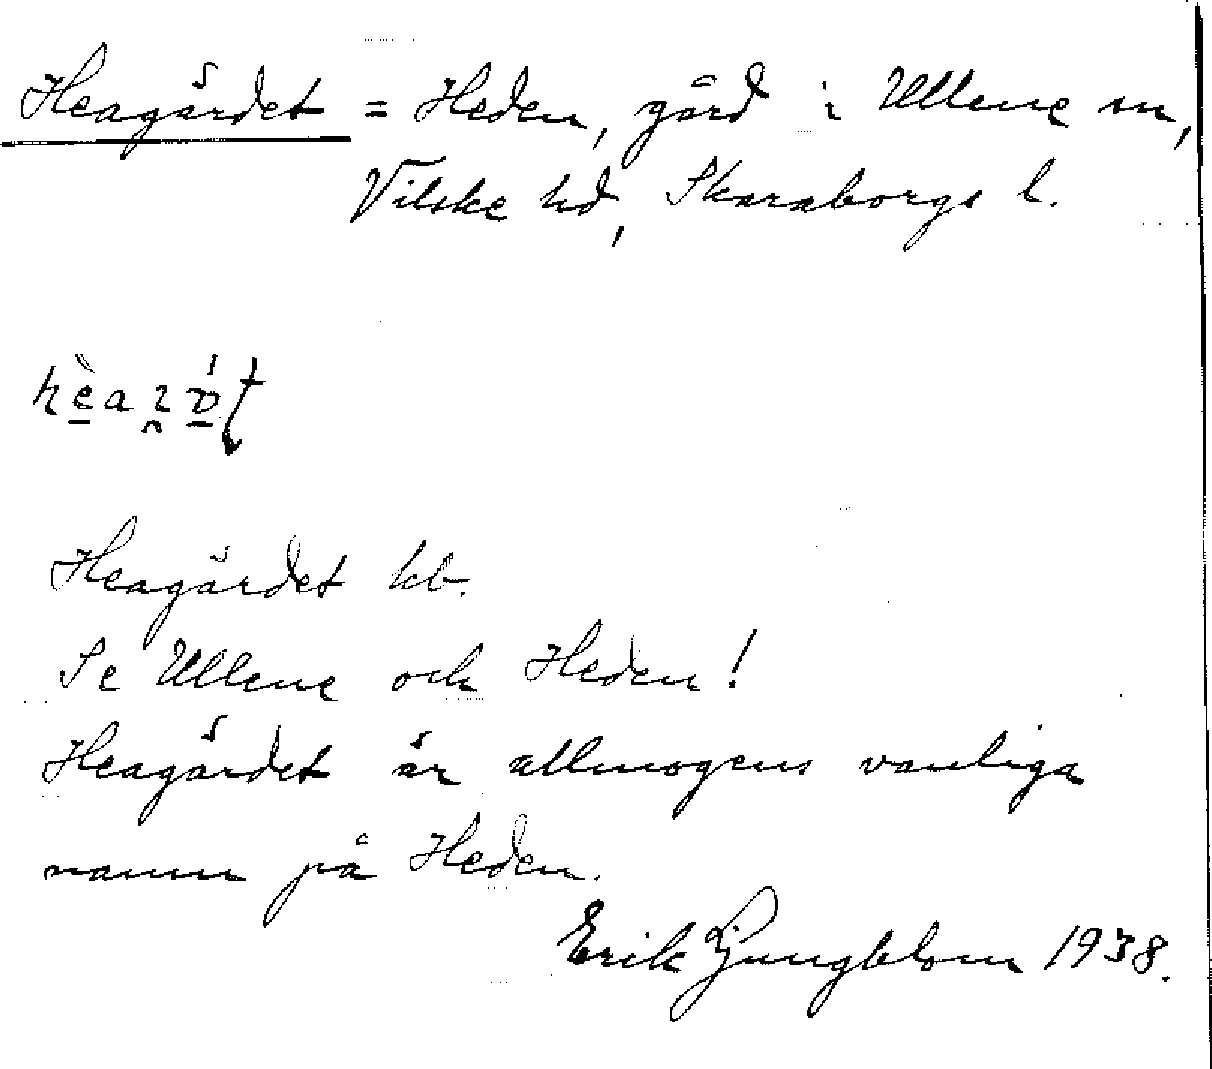 Heagärdet = Heden, gård i Ullene sn,
Vilske hd, Skaraborgs l.
Heagärdet kb.
Se Ullene och Heden!
Heagärdet är allmogens vanliga
namn på Heden.
Erik Ljungblom 1938.